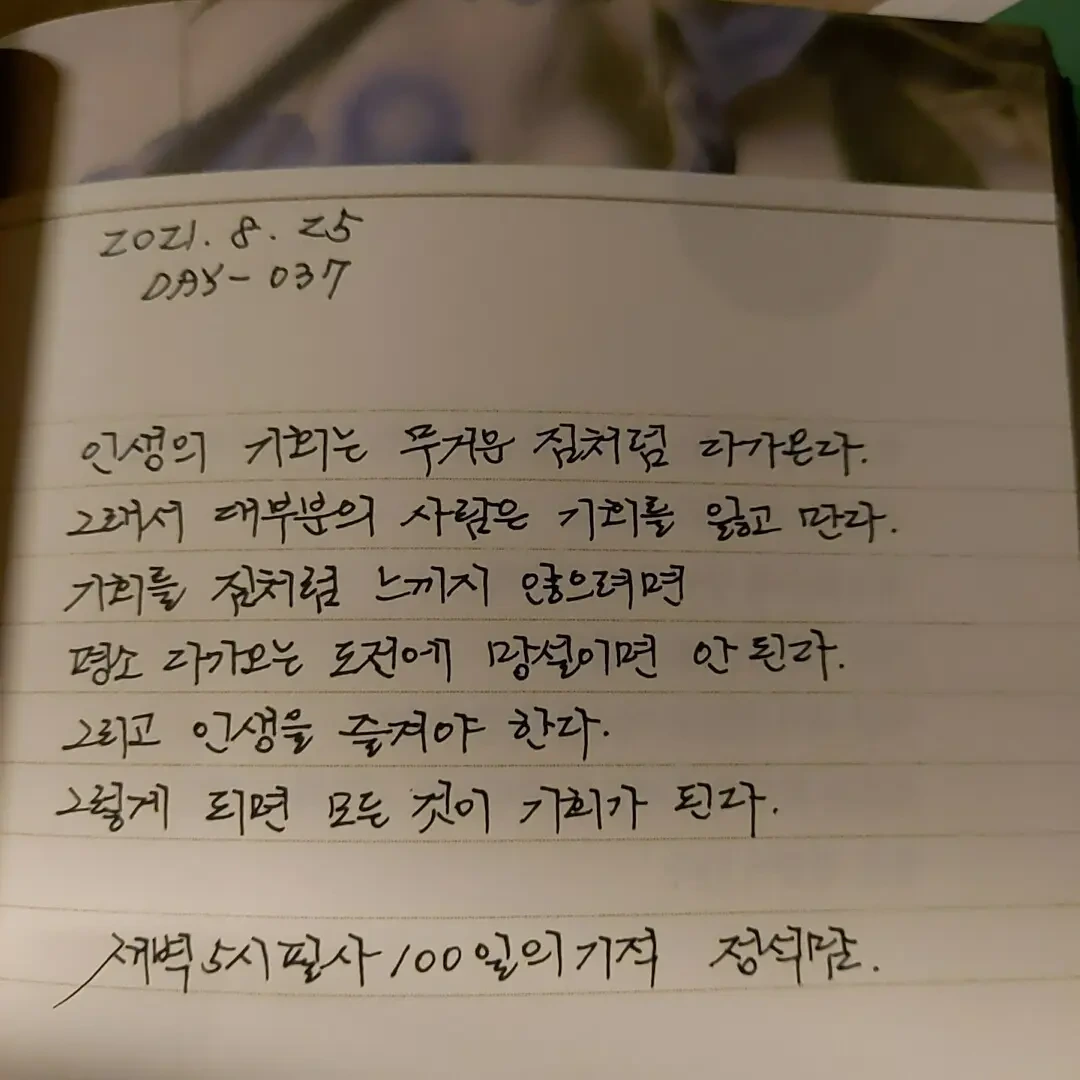 2021. 8. 25
DAY - 037
인생의 기회는 무거운 짐처럼 다가온다.
그래서 대부분의 사람은 기회를 잃고 만다.
기회를 짐처럼 느끼지 않으려면
평소 다가오는 도전에 망설이면 안 된다.
그리고 인생을 즐겨야 한다.
그렇게 되면 모든 것이 기회가 된다.
새벽 5시 필사 100일의 기적